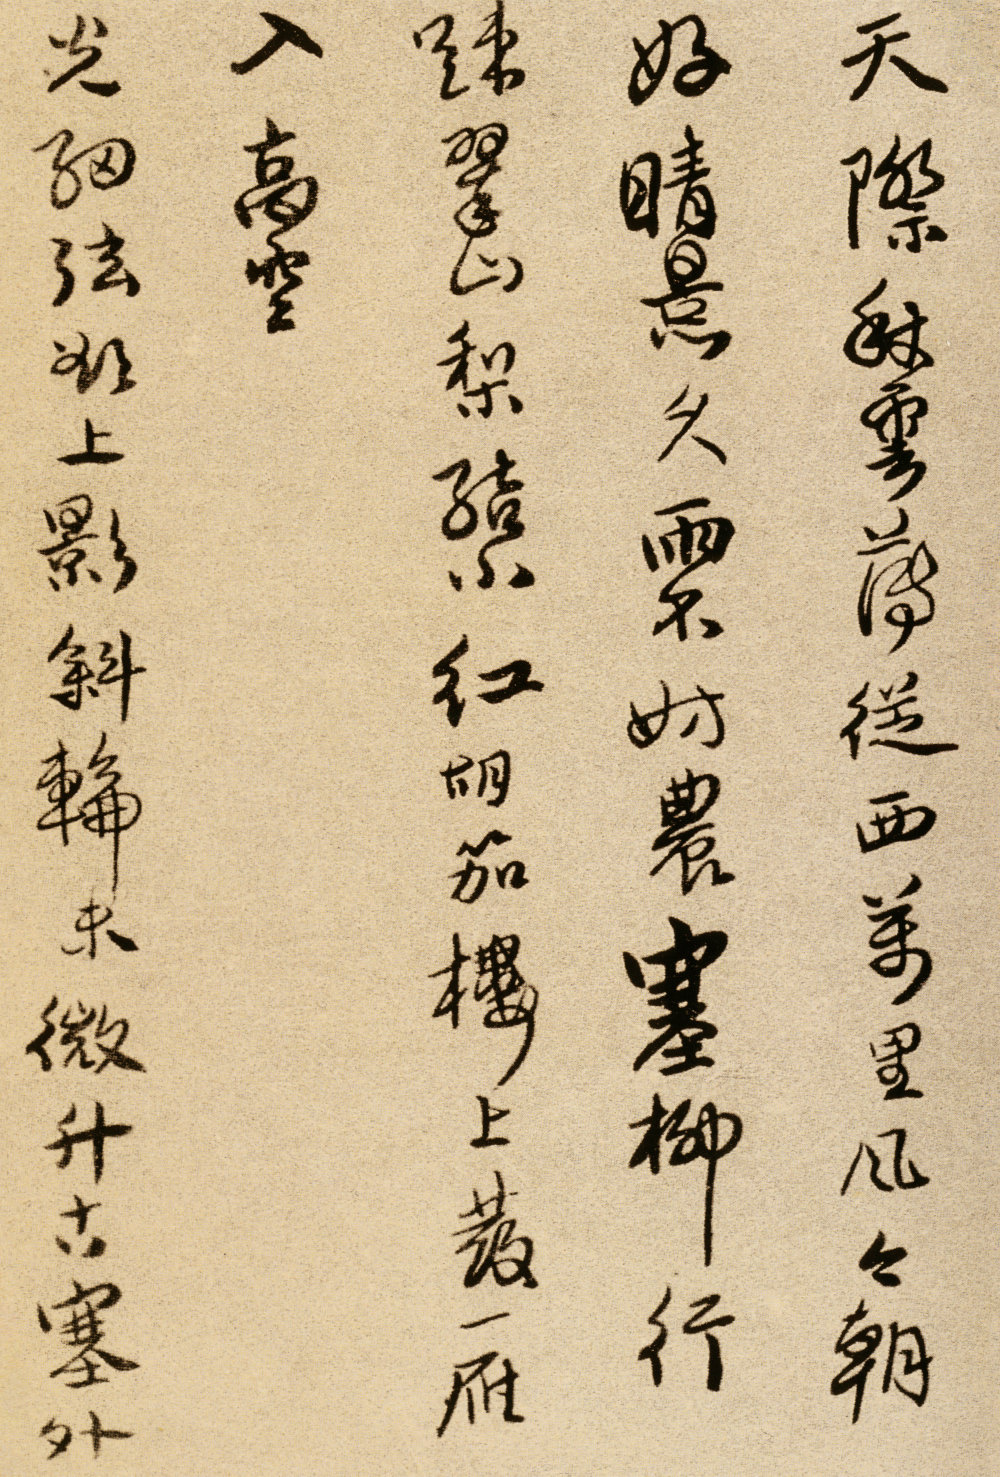 天際秋雲薄從西萬里風今朝
好晴景久雨不妨農塞柳行
踈翠山梨結小紅胡笳樓上發一雁
入高空
光細弦欲上影斜輪未
微升古塞外